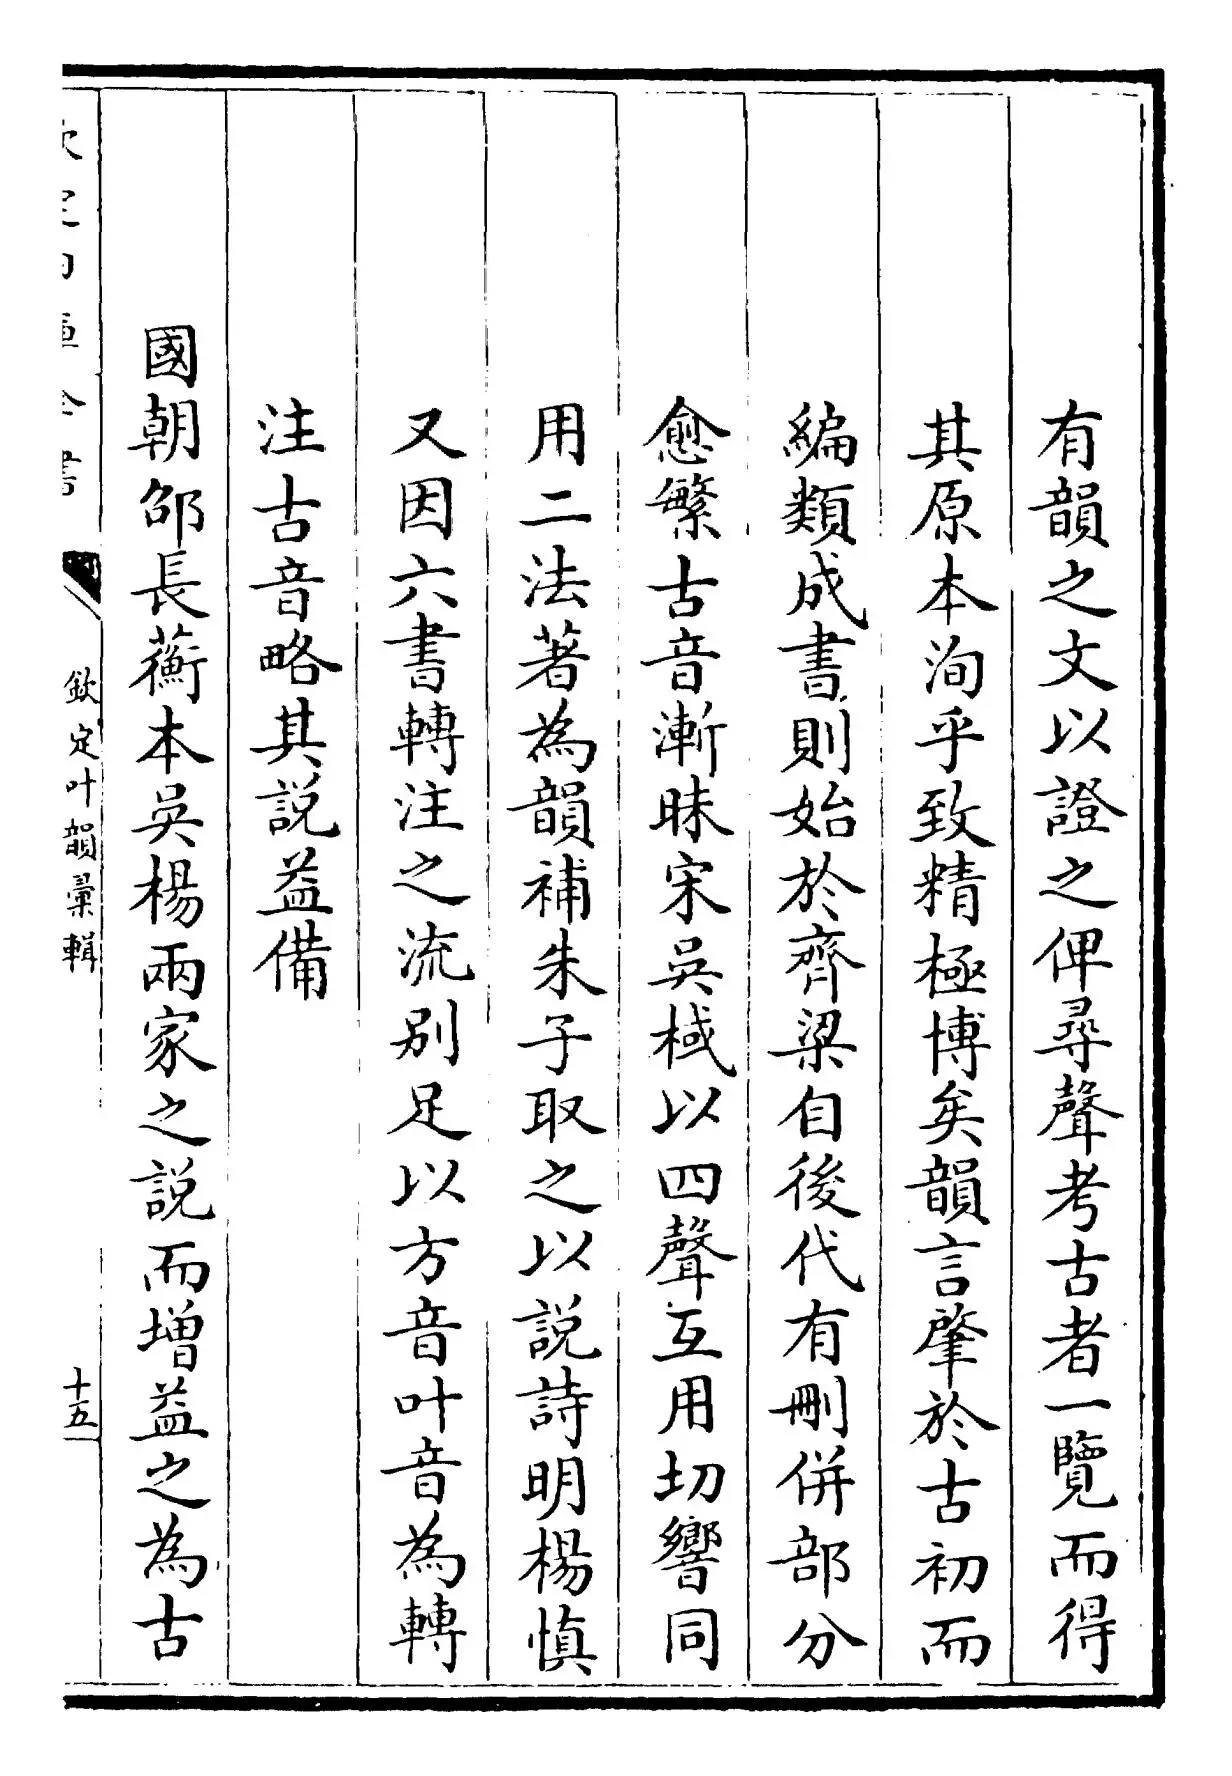 有韻之文以證之俾尋聲考古者一覽而得
其原本洵乎致精極博矣韻言肈於古初而
編類成書則始於齊梁自後代有刪併部分
愈繁古音漸昧宋吳棫以四聲互用切響同
用二法著為韻補朱子取之以說詩明楊慎
又因六書轉注之流别足以方音叶音為轉
注古音略其說益備
國朝邵長蘅本吳楊兩家之說而增益之為古
欽定四庫全書
欽定叶韻彚輯
十五